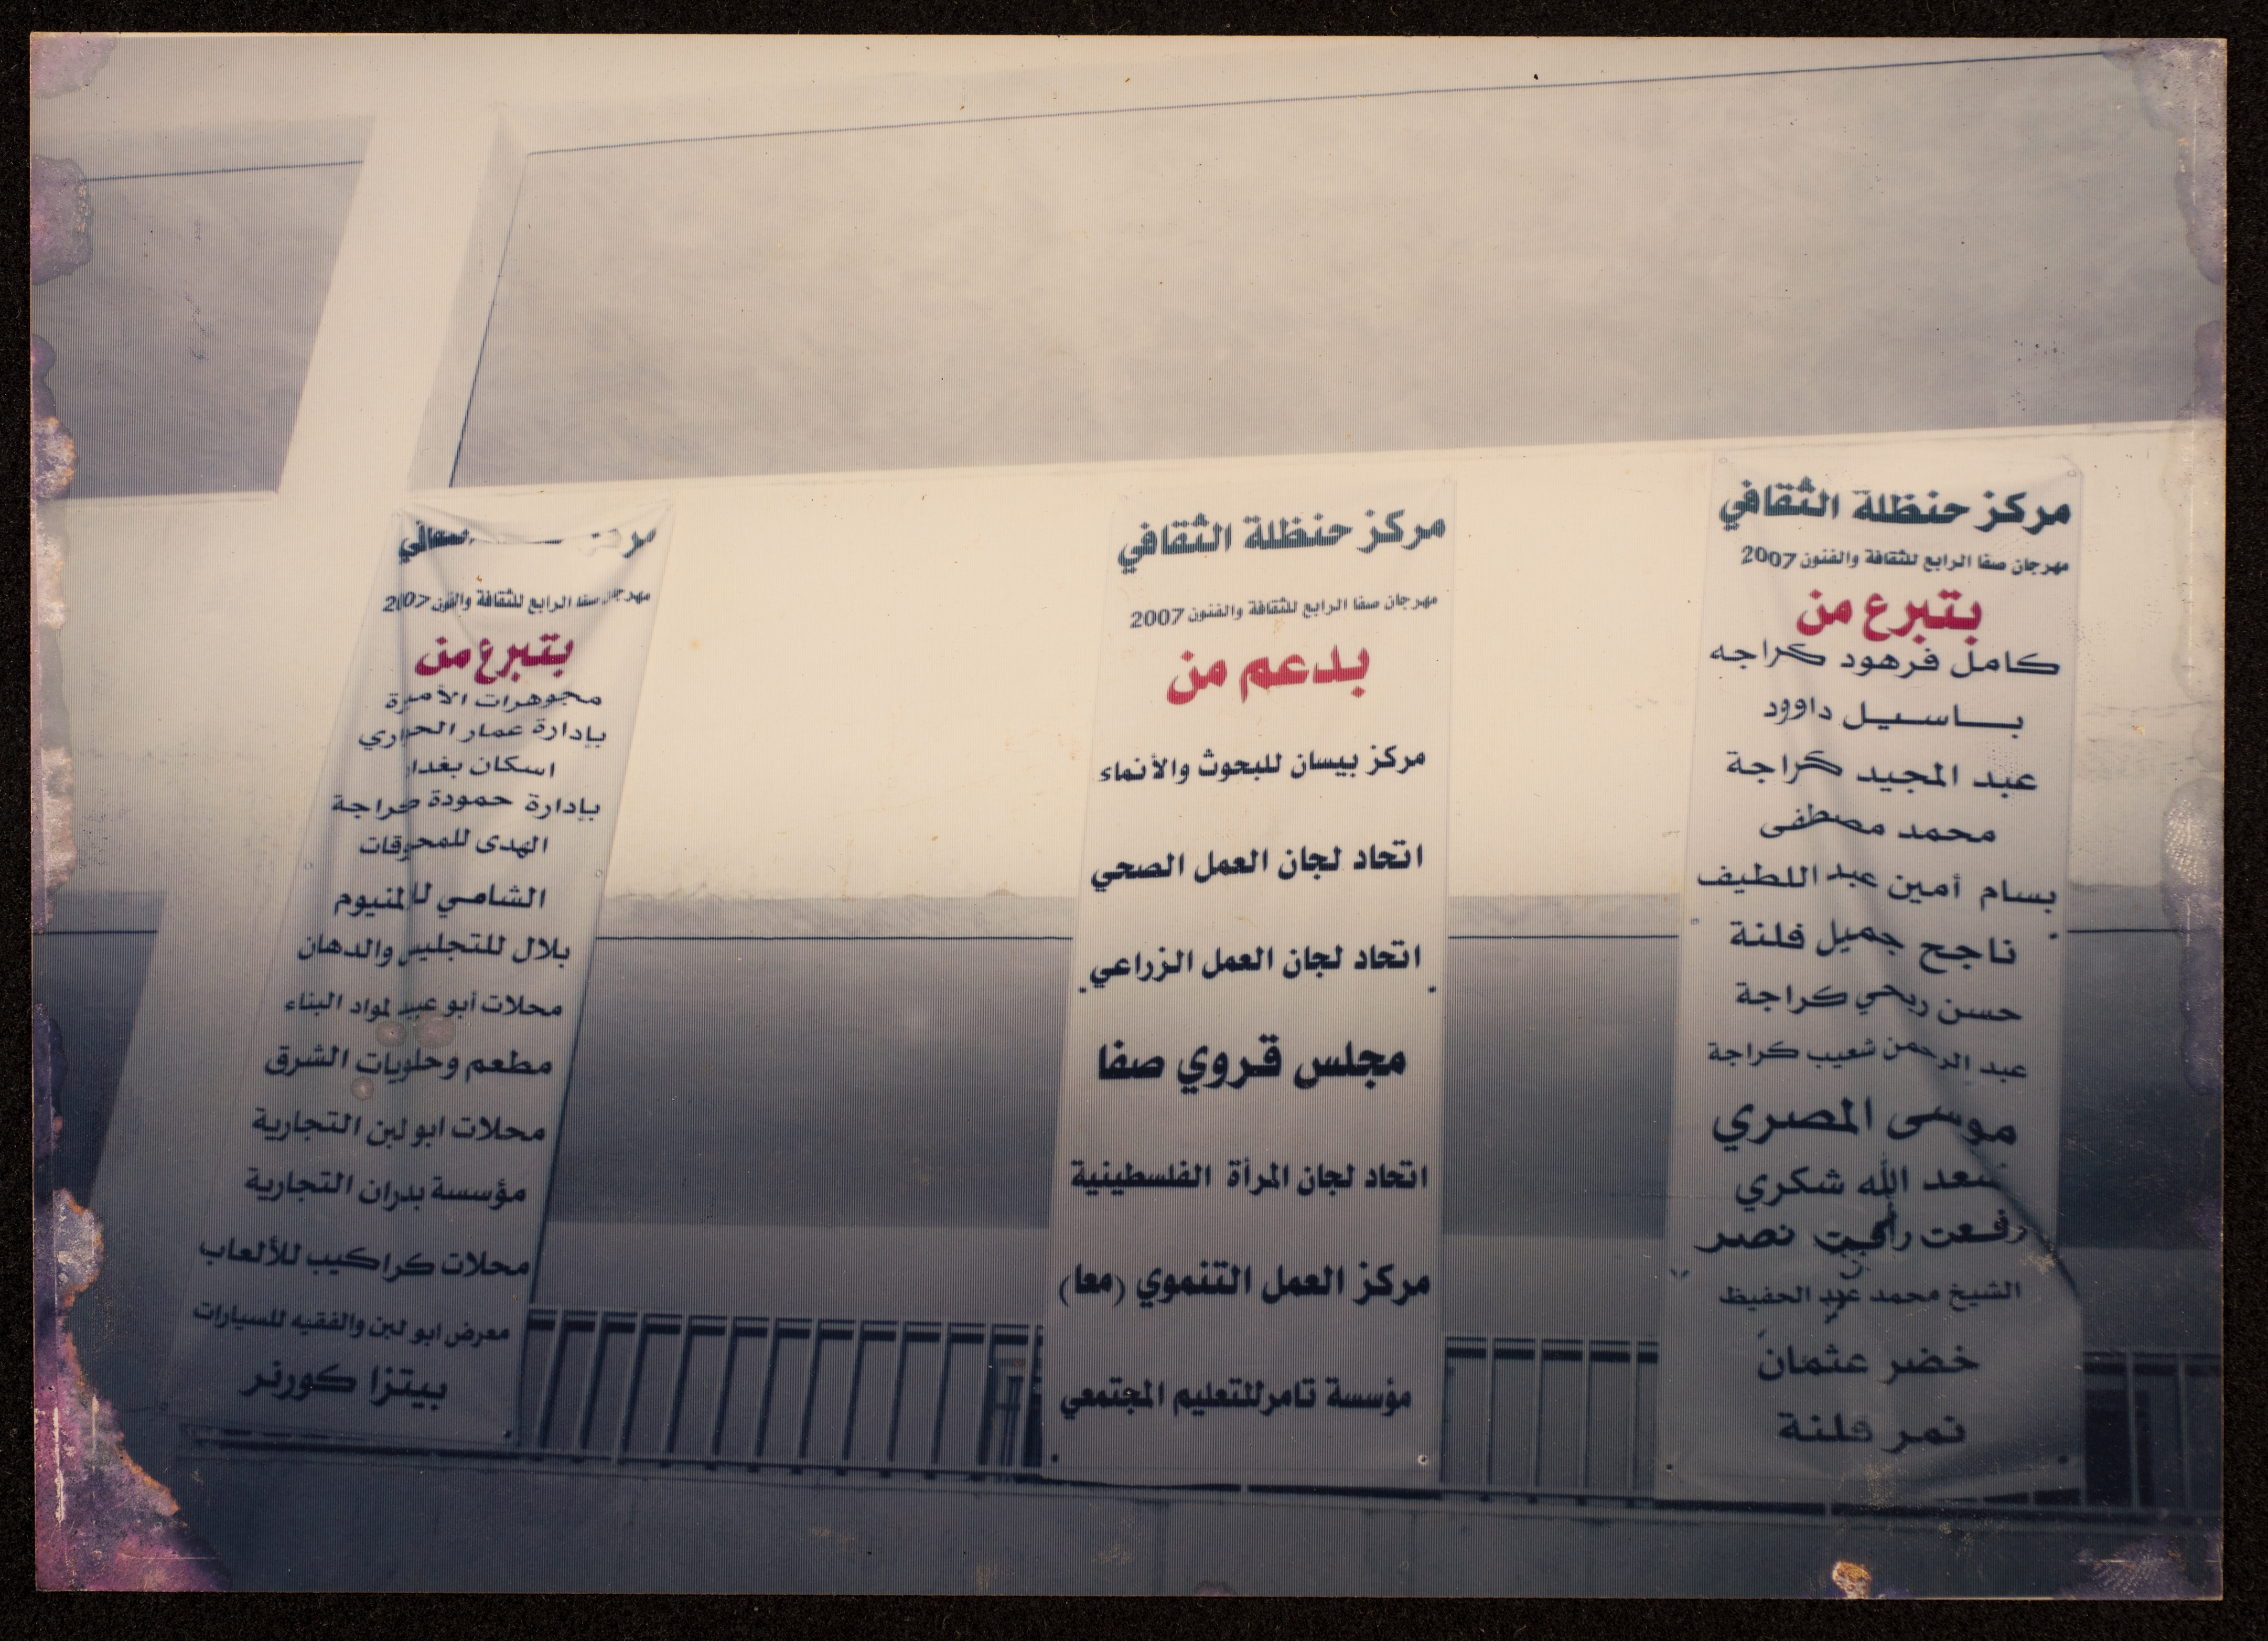 مركز حنظلة الثقافي
مهرجان صفا الرابع للثقافة والفنون 2007
بتبرع من
كامل فرهود كراجه
باسيل داوود
عبد المجيد كراجة
محمد مصطفى
بسام أمين عبد اللطيف
ناجح جميل فلنة
حسن ربحي كراجة
عبد الرحمن شعيب كراجة
موسى المصري
سعد الله شكري
رفعت نصر
الشيخ محمد عبد الحفيظ
خضر عثمان
نمر فلنة
مركز حنظلة الثقافي
مهرجان صفا الرابع للثقافة والفنون 2007
بدعم من
مركز بيسان للبحوث والأنماء
اتحاد لجان العمل الصحي
اتحاد لجان العمل الزراعي
مجلس قروي صفا
اتحاد لجان المرأة الفلسطينية
مركز العمل التنموي (معا)
مؤسسة تامر للتعليم المجتمعي
مركز الثقافي
مهرجان صفا الرابع للثقافة والفنون 2007
بتبرع من
مجوهرات الأميرة
بإدارة عمار
اسكان بغداد
بإدارة حمودة كراجة
الهدى للمحروقات
الشامي للالمنيوم
بلال للتجليس والدهان
محلات أبو عبيد لمواد البناء
مطعم وحلويات الشرق
محلات ابو لبن التجارية
مؤسسة بدران التجارية
محلات كراكيب للألعاب
معرض ابو لبن والفقيه للسيارات
بيتزا كورنر